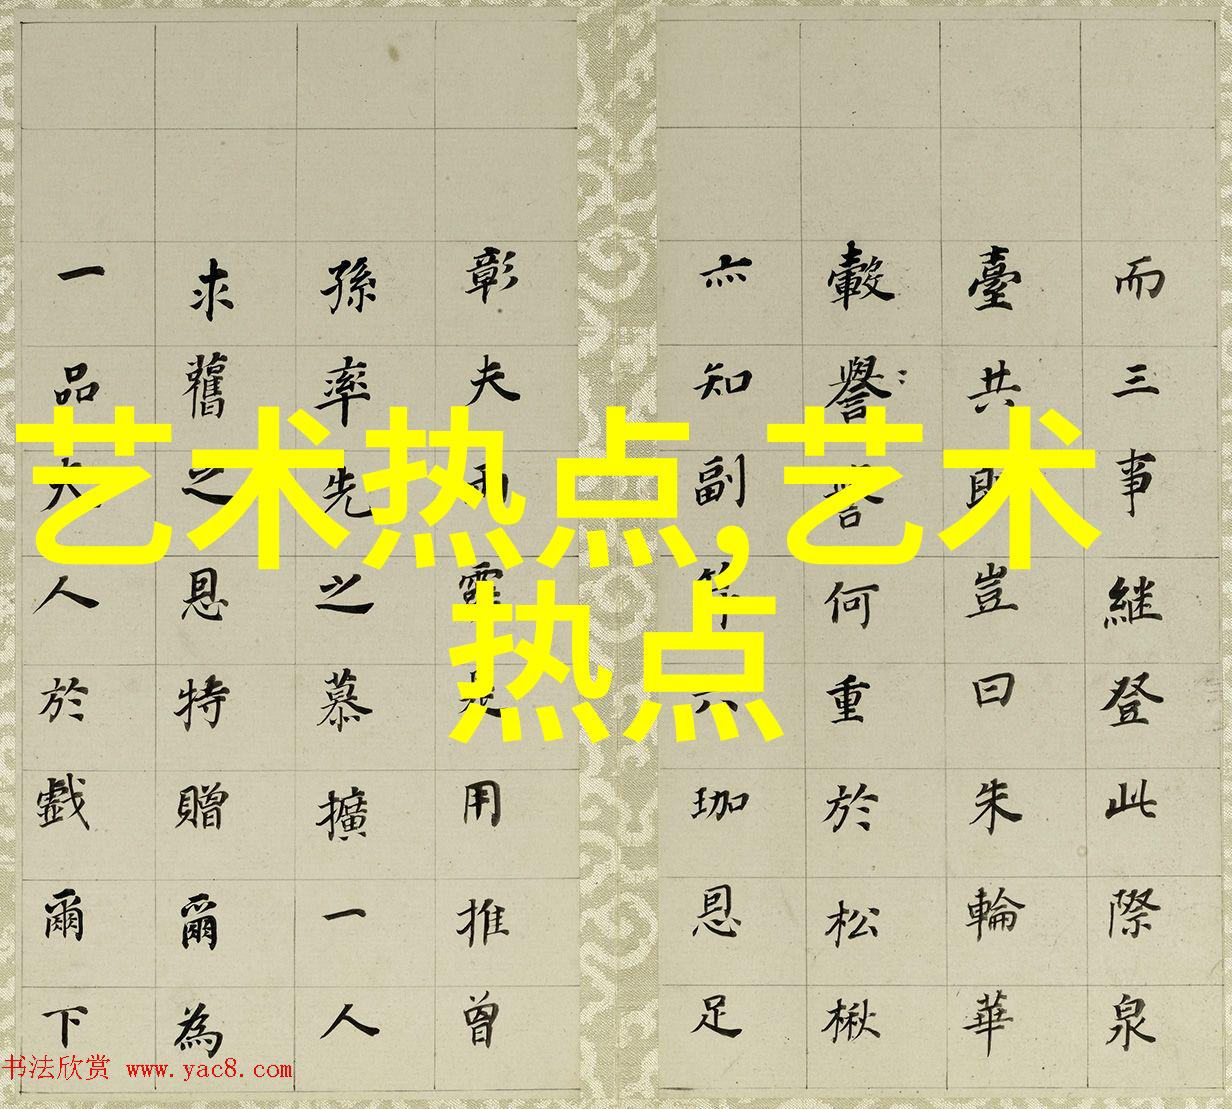 艺术热点,艺术
热点
而三事継登此際泉
臺共即豈曰朱輪華
轂譽譽何重於松楸
亦知副笄六珈恩足
彰夫雨露是用推曾
孫率先之慕擴一人
求舊之恩特贈爾為
一品夫人於戲爾下
书法欣赏 www.yac8.com